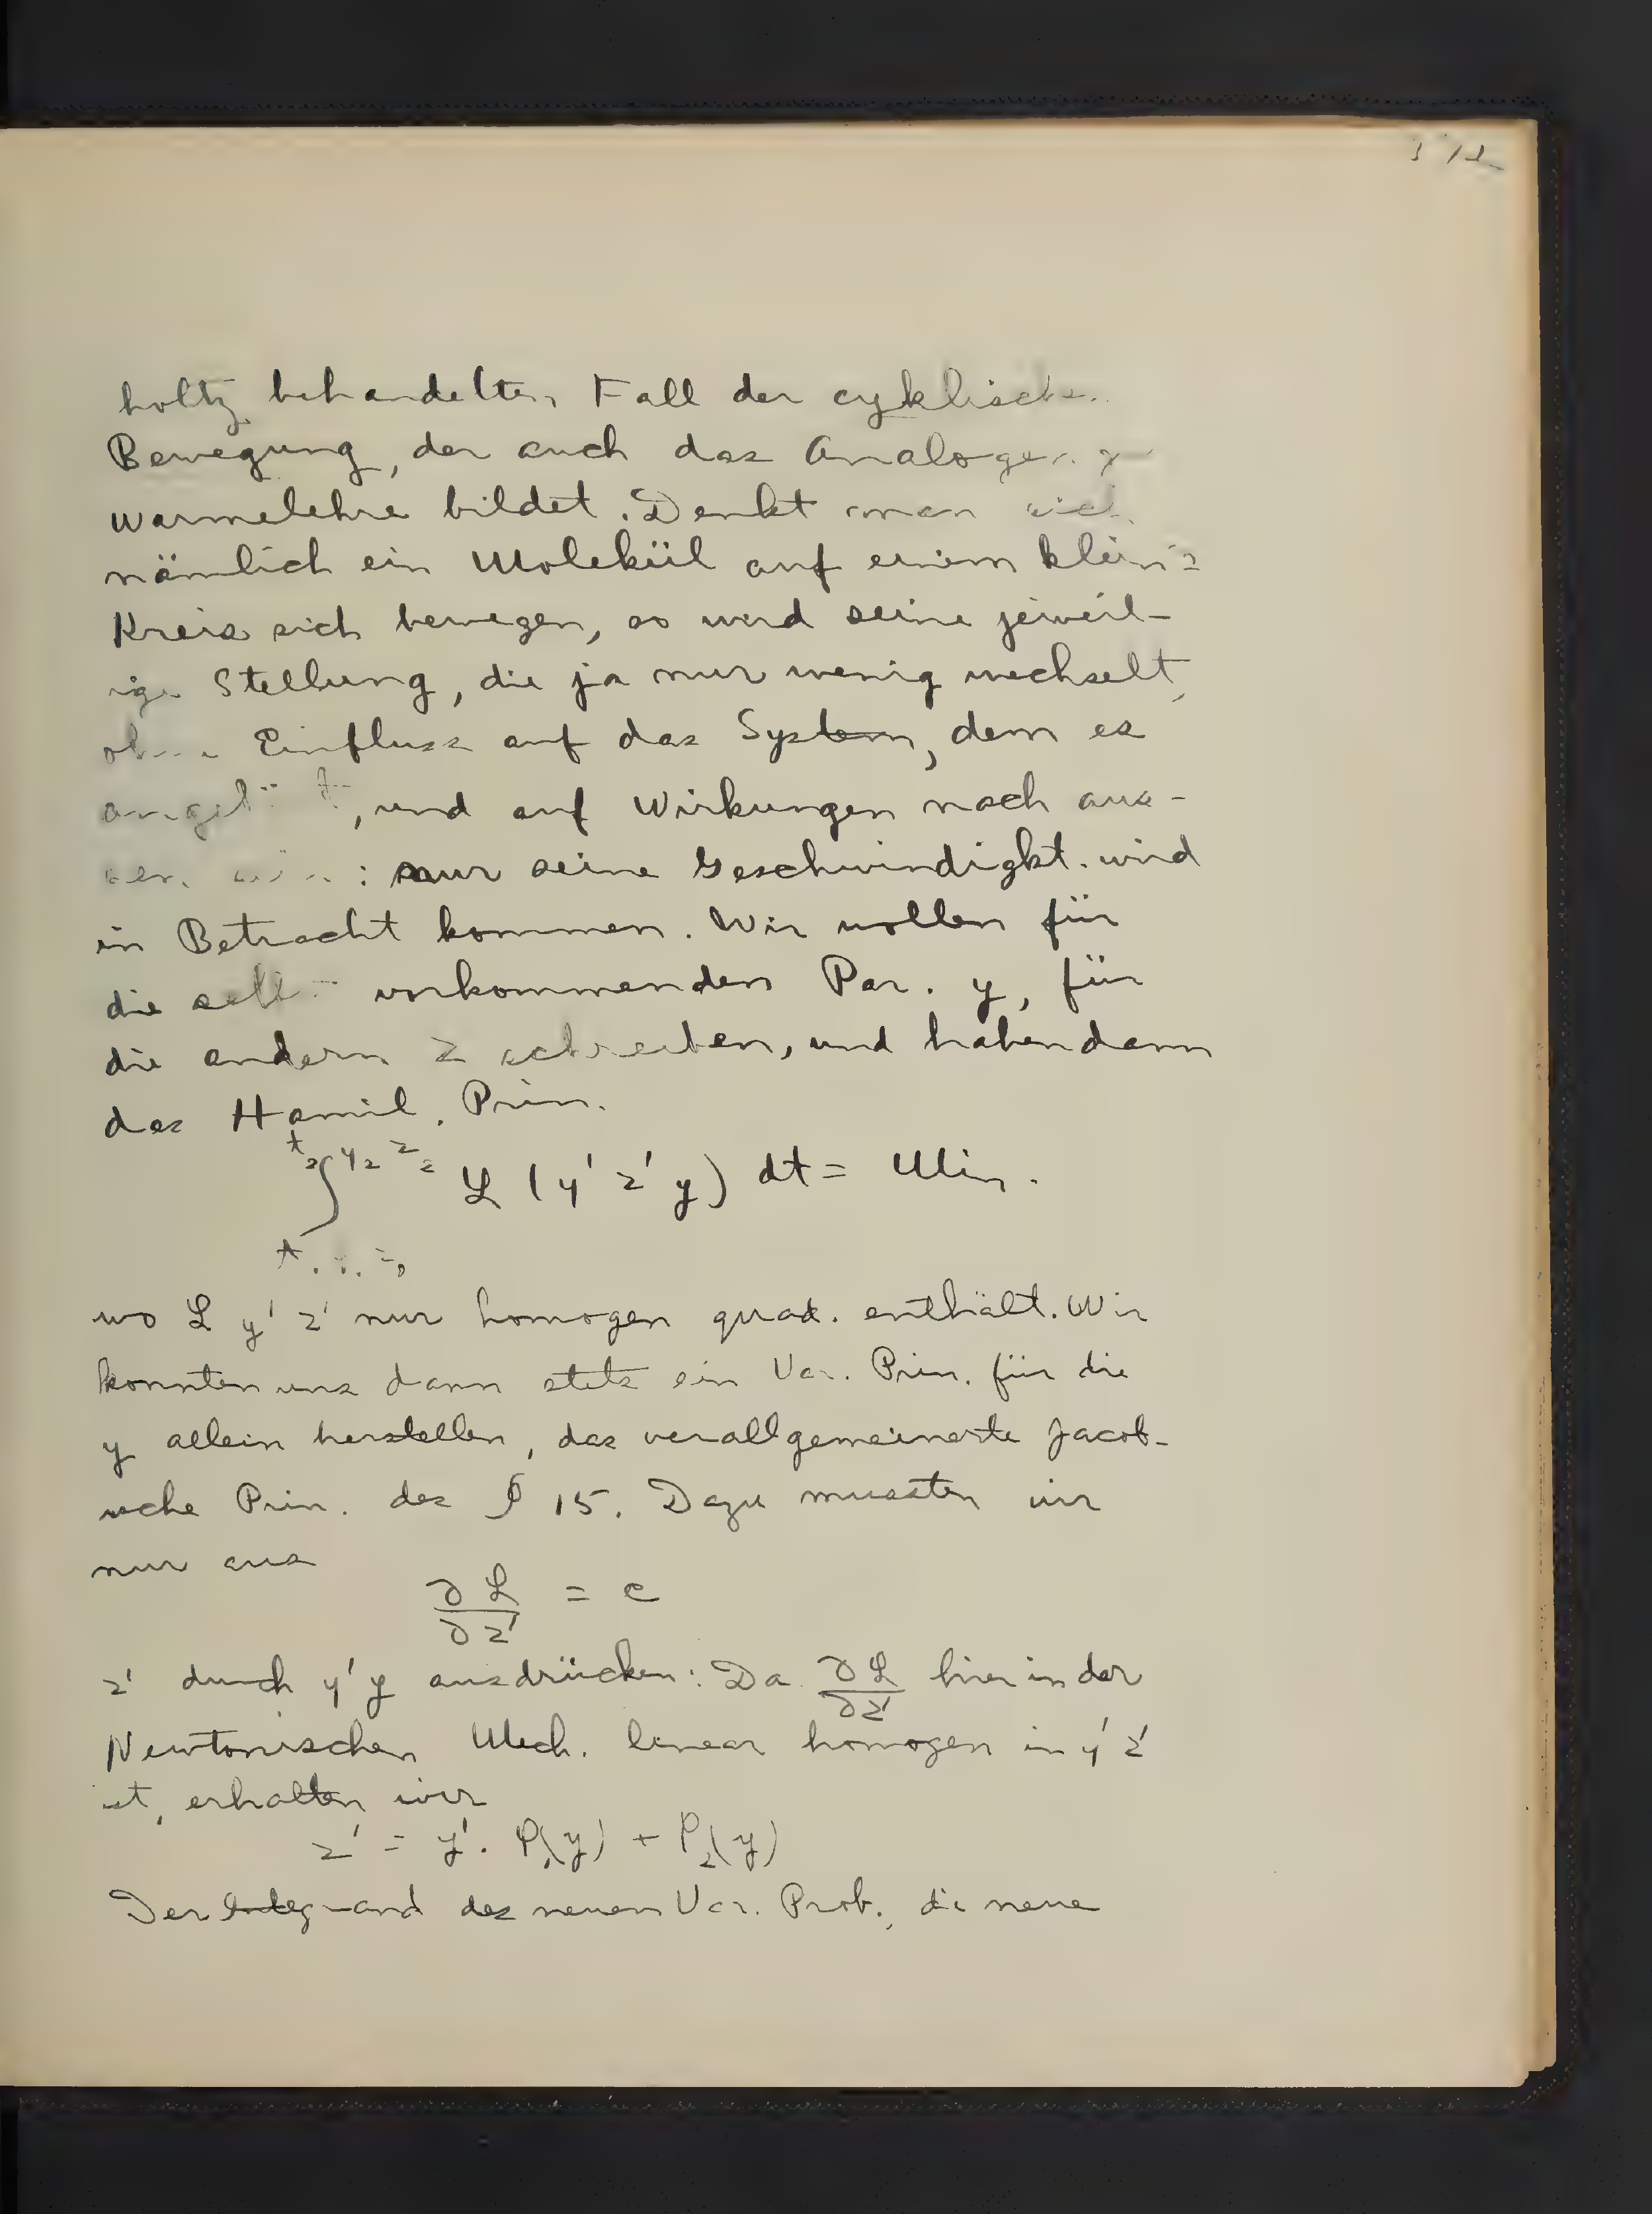 holtz behandelten Fall der cyklischen
Bewegung, der auch das Analogon z
warmelehre bildet. Denkt man sich
nämlich ein Molekül auf einem kleinen
Kreis sich bewegen, so wird seine jeweil-
ige Stellung, die ja nur wenig wechselt,
ohne Einfluss auf das System, dem es
angehört, und auf Wirkungen nach aus-
sen sein: nur seine Geschwindigkt. wird
in Betracht kommen. Wir wollen für
die selbst vorkommenden Par. y, für
die andern z schreiben, und haben dann
das Hamil. Prin.
∫ t₂ y₂ z₂ L (y' z' y) dt = Min.
wo L y' z' nur homogen quad. enthält. Wir
konnten uns dann stets ein Var. Prin. für die
y allein herstellen, das verallgemeinerte Jacob-
ische Prin. des § 15. Dazu mussten wir
nur aus
∂L/∂z' = c
z' durch y' y ausdrücken: Da ∂L/∂z' hier in der
Newtonischen Mech. linear homogen in y' z'
ist, erhalten wir
z' = y'. P₁(y) + P₂(y)
Der Integrand des neuen Var. Prob., die neue